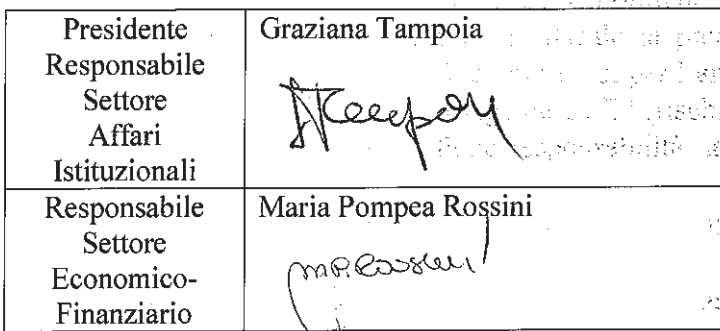 Presidente
Responsabile
Settore
Affari
Istituzionali
Graziana Tampoia
Responsabile
Settore
Economico-
Finanziario
Maria Pompea Rossini